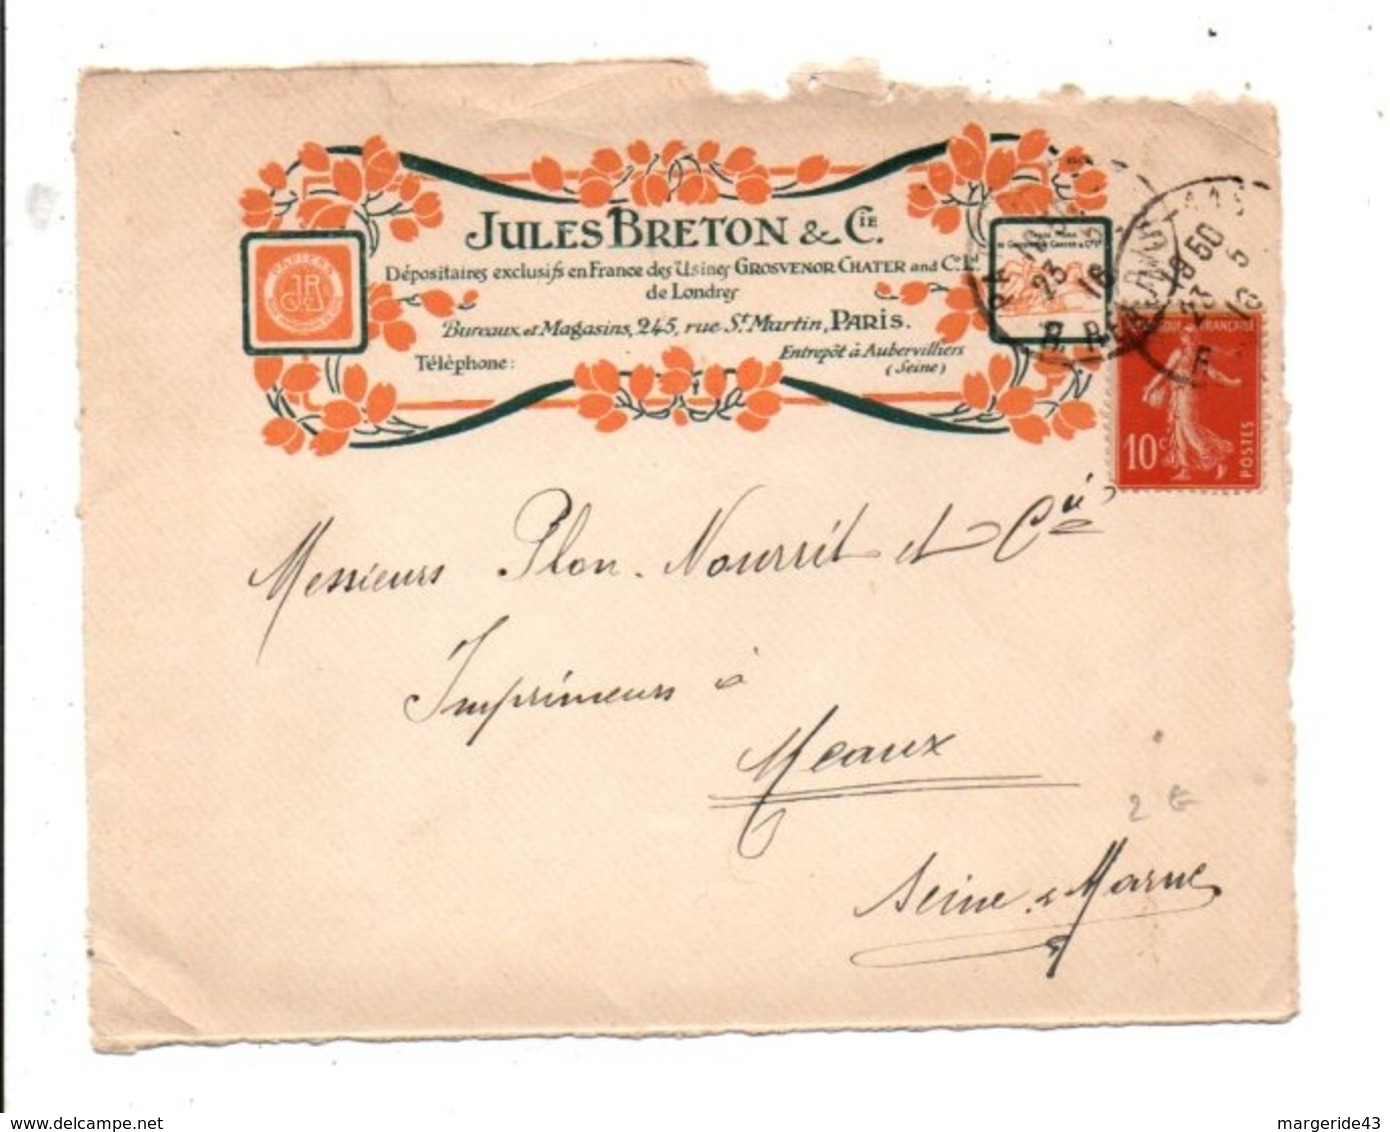 JULES BRETON & CIE.
Dépositaires exclusifs en France des Usines GROSVENOR CHATER and Co. Ld
de Londres
Bureaux et Magasins, 245, rue St. Martin, PARIS.
Téléphone:
Entrepôt à Aubervilliers
(Seine)
PAPIERS
23
16
18 50
23 5
16
FRANÇAISE
10c
POSTES
Messieurs Plon. Nourrit et Cie
Imprimeurs à
Meaux
Seine & Marne
2 €
www.delcampe.net
margeride43